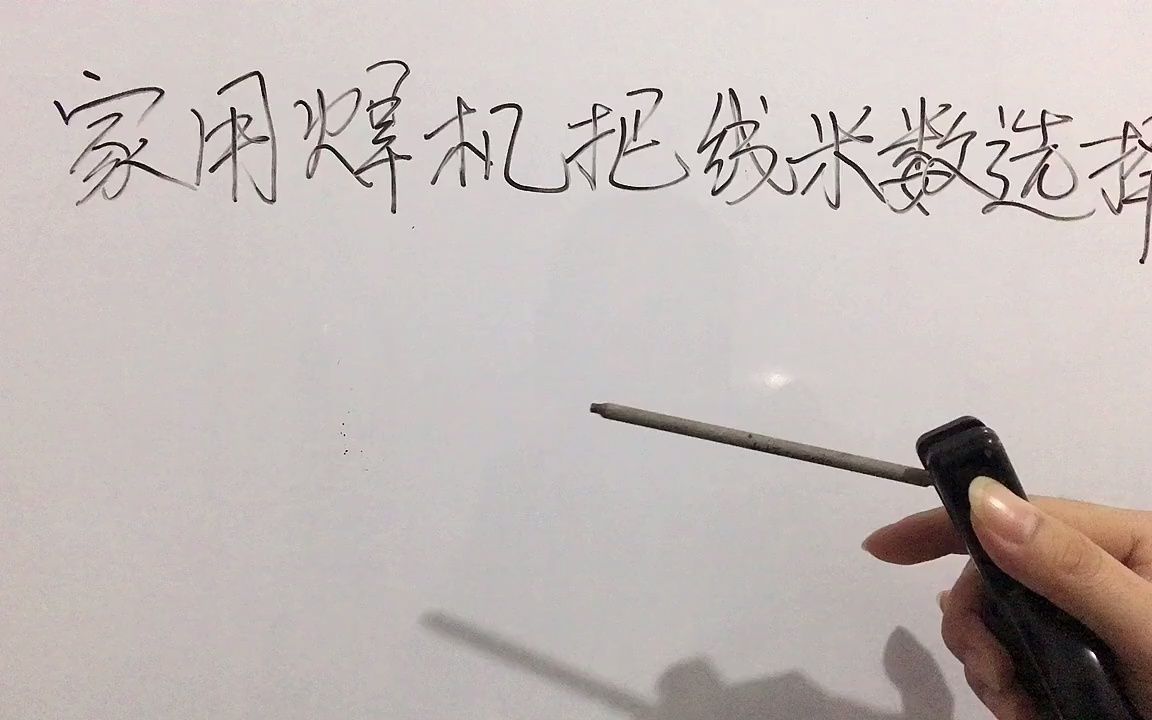 家用焊机把线米数选择